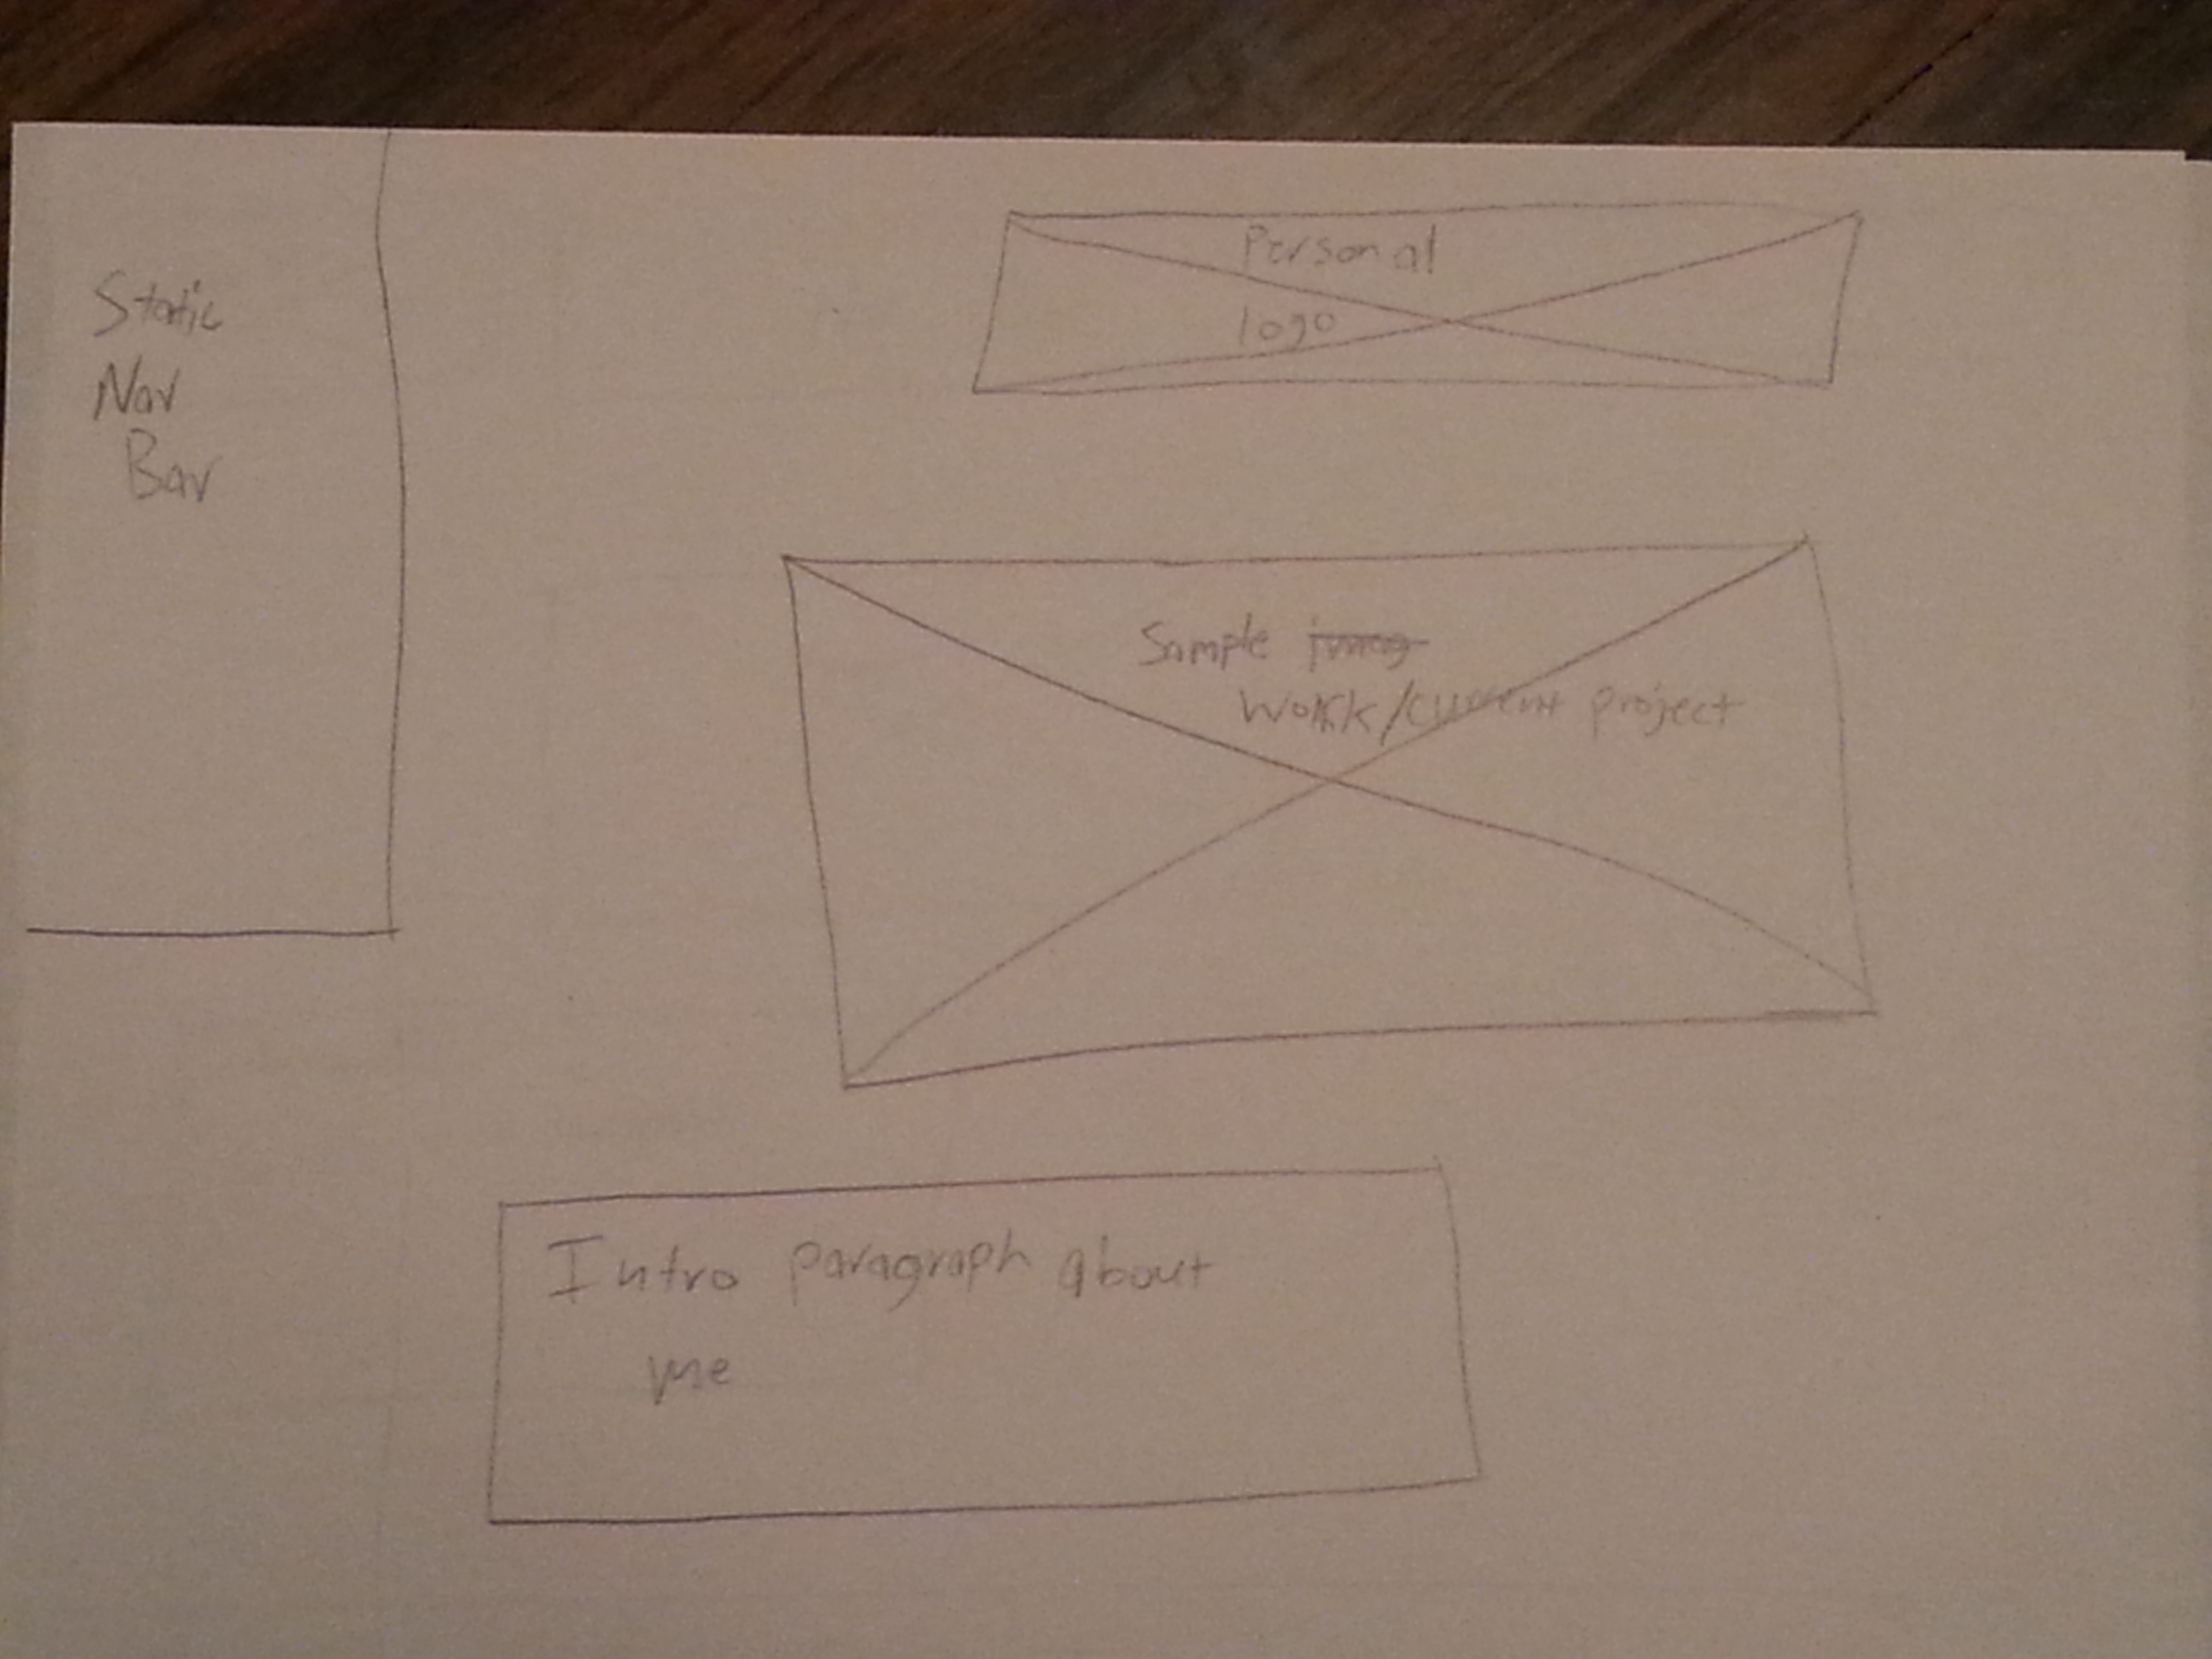 Static
Nav
Bar
Personal
logo
Sample
Work/current project
Intro paragraph about
me